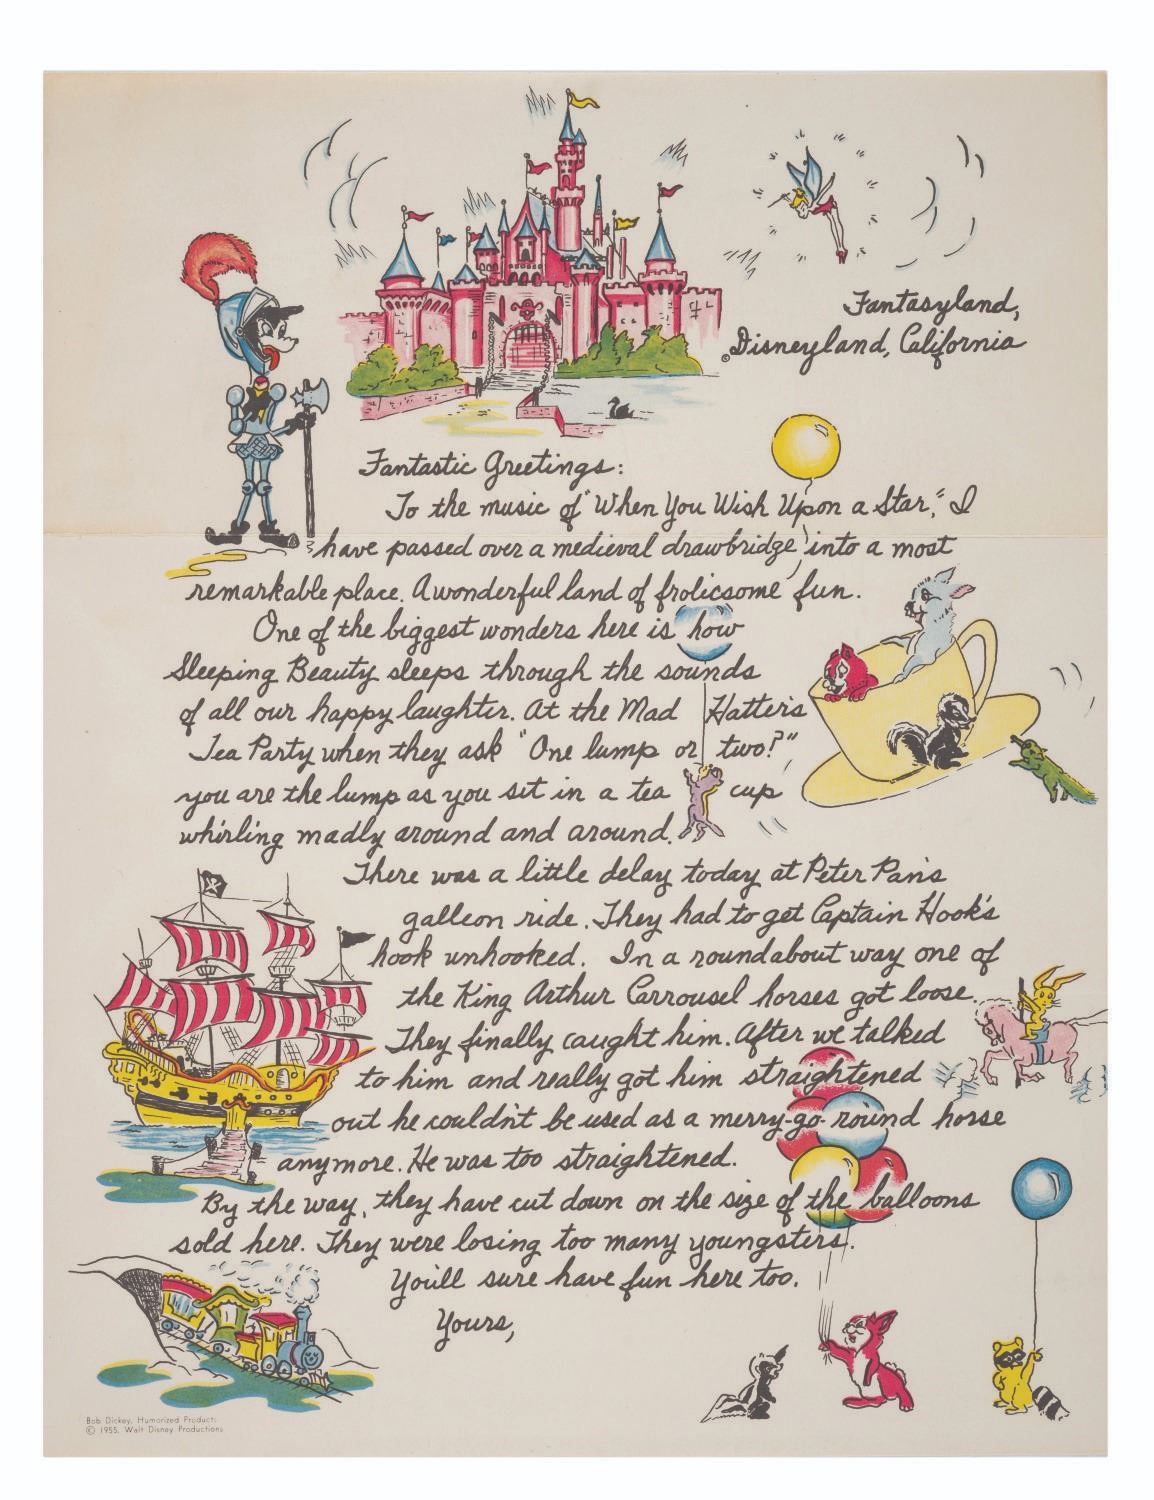 Fantasyland,
© Disneyland, California
Fantastic Greetings:
To the music of "When You Wish Upon a Star," I
have passed over a medieval drawbridge into a most
remarkable place. A wonderful land of frolicsome fun.
One of the biggest wonders here is how
Sleeping Beauty sleeps through the sounds
of all our happy laughter. At the Mad Hatter's
Tea Party when they ask "One lump or two?",
you are the lump as you sit in a tea cup
whirling madly around and around.
There was a little delay today at Peter Pan's
galleon ride. They had to get Captain Hook's
hook unhooked. In a roundabout way one of
the King Arthur Carrousel horses got loose.
They finally caught him. After we talked
to him and really got him straightened
out he couldn't be used as a merry-go-round horse
anymore. He was too straightened.
By the way, they have cut down on the size of the balloons
sold here. They were losing too many youngsters.
You'll sure have fun here too.
Yours,
Bob Dickey, Humorized Products
© 1955, Walt Disney Productions